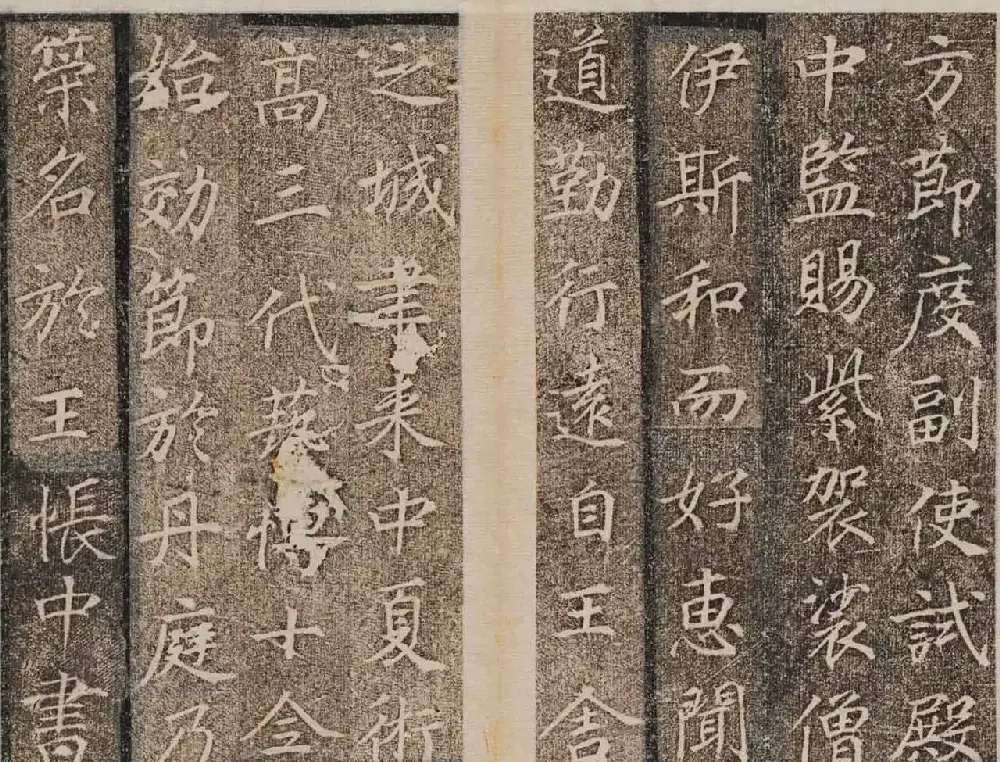 方莭度副使試殿
中監賜紫袈裟僧
伊斯和而好惠聞
道勤行遠自王舍
之城聿来中夏術
高三代藝博十全
始効節於丹庭乃
策名於王帳中書